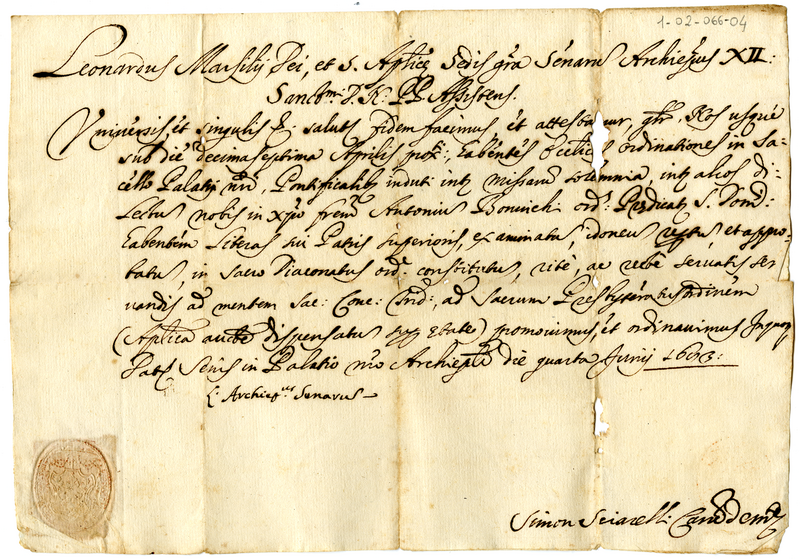 1-02-066-04
Leonardus Marsilij Dei, et S. Aplicę Sedis gra Senarū Archiepus XII:
Sanctmi D. N. PP. Assistens.
Universis, et singulis salutē fidem facimus, et attestamur, Nos usque
sub die decimaseptima Aprilis Habentes ordinationes in Sa-
cello Palatij nri, Pontificalib induti missarū solemnia, int alios di-
lectus nobis in Xpo Antonius Bonuich ord: Predicat S. Dom:
Habentem Literas sui Patris Superioris, examinatus, idoneus et appro-
batus, in Sacro Diaconatus ord constitutus, ritè, ac servatis ser
vandis ad mentem Sac: Conc: Trid: ad Sacrum Presbyteratus ordinem
(Aplica aucte dispensatus sup etate) promovimus, et ordinavimus In quor
Dat Senis in Palatio nro Archiepli die quarta Junij 1663:
L: Archiepus Senarus
Simon Sciarelli Canc